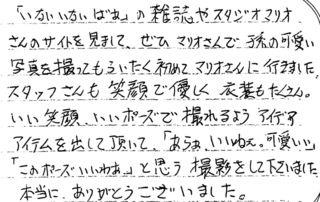 「いないいないばあ」の雑誌やスタジオマリオ
さんのサイトを見まして、ぜひマリオさんで子供の可愛い
写真を撮ってもらいたく初めてマリオさんに行きました。
スタッフさんも笑顔で優しく衣装もたくさん。
いい笑顔、いいポーズで撮れるようアイデア
アイテムを出して頂いて、「あらぁ、いいねぇ。可愛い」
「このポーズいいわぁ」と思う撮影をして下さいました。
本当に、ありがとうございました。